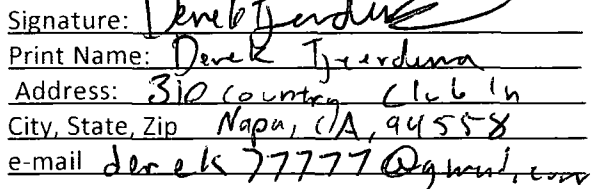 Signature: Derek
Print Name: Derek
Address: 310 Country Club ln
City, State, Zip Napa, CA, 94558
e-mail derek77777@gmail.com